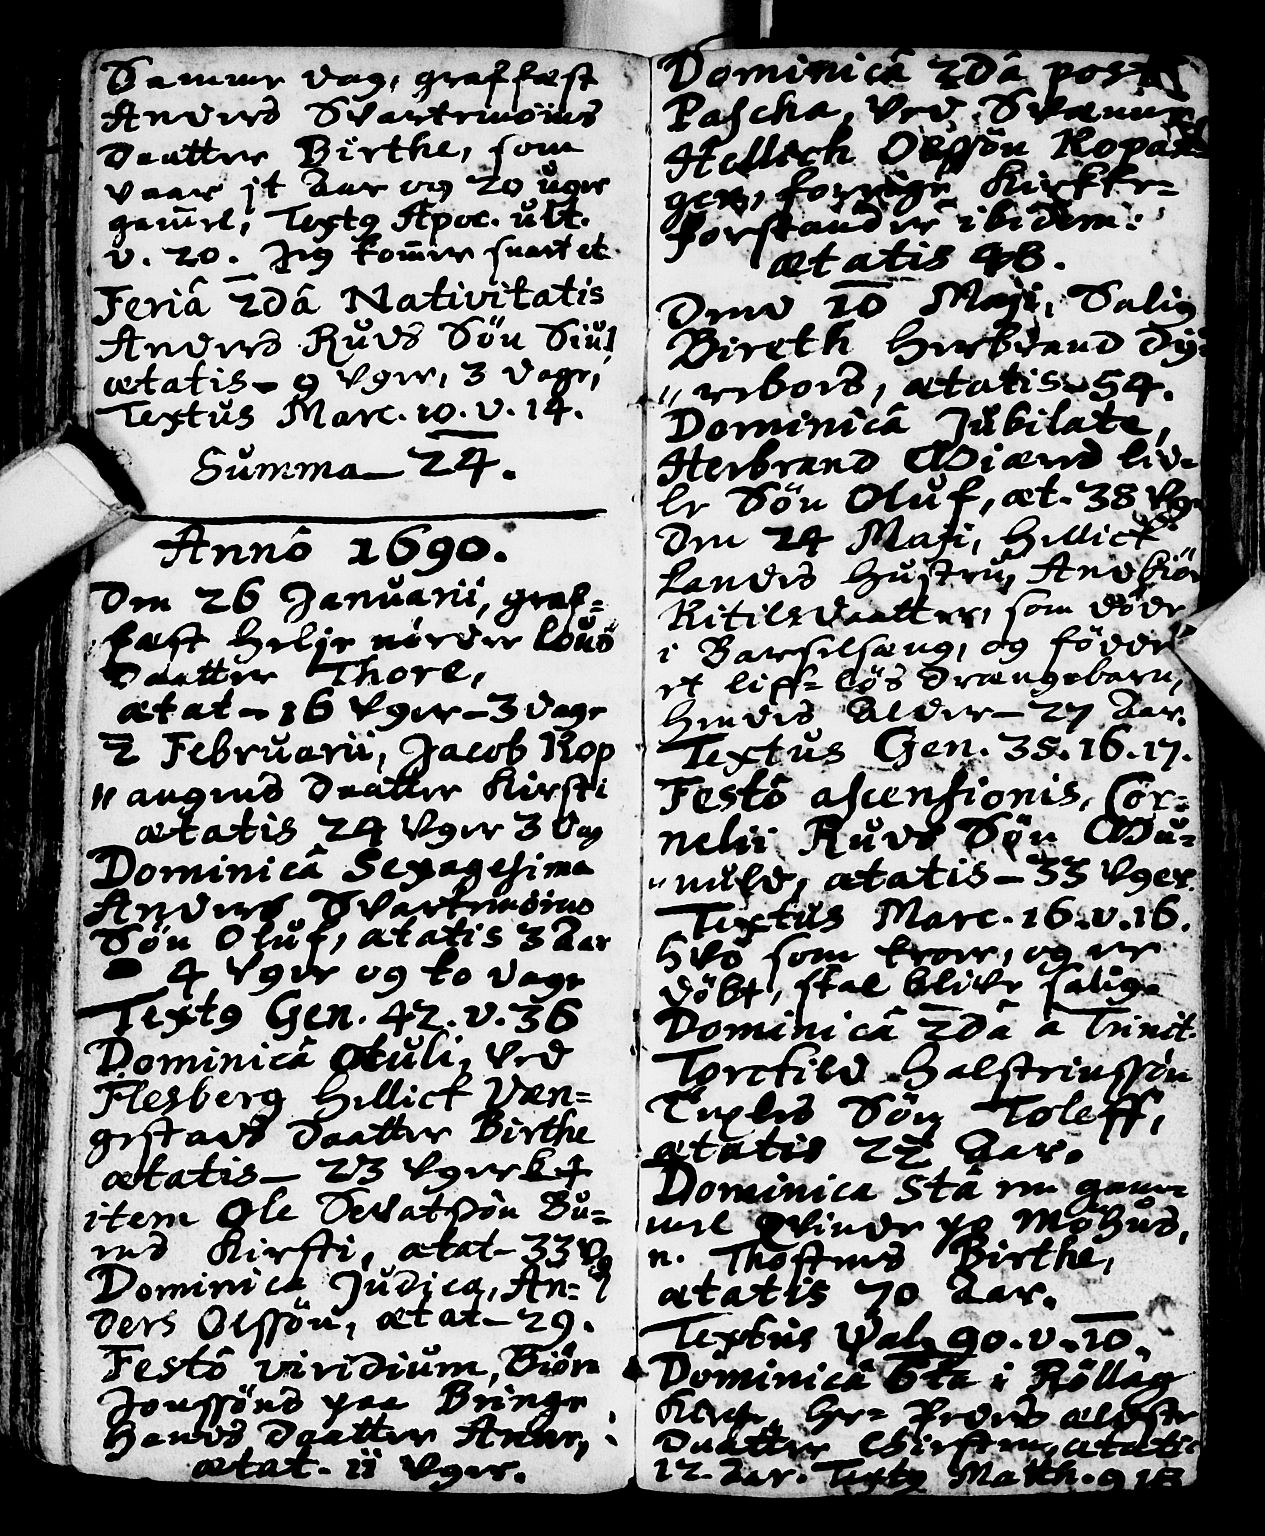 Samme dag, graffæst
Anders Svartemoiens
daatter Birthe, som
vaar jt aar og 20 uger
gam̄el, Text9 Apoc. ult.
v. 20. Jeg kom̄er snart etc
Feriâ 2dâ Nativitatis
Anders Ruds Sön Siul
ætatis 9 Uger, 3 dage,
Textus Marc. 10. v. 14.
Summa 24.
Annô 1690.
Den 26 Januarii, graf=
fæst Helje nörder
Daatter Thore,
ætat 16 Uger 3 dage
2 Februarii, Jacob Kop
" augens Daatter Kirsti
ætatis 24 Uger 3 dag
Dominicâ Sexagesima
Anders Svartemoiens
Sön Oluf, ætatis 3 Aar
4 Uger og to dage
Text9 Gen. 42. v. 36
Dominicâ Oculi, ved
Flesberg Hellick Væn=
gestads daatter Birthe
ætatis 23 Uger
item Ole Bu=
ens Kirsti, ætat 33
Dominica Judica, An=
ders Olssön, ætat 29.
Festô viridium, Biörn
Jonssöns paa Bringe
Hauds daatter Anne,
ætat. 11 Uger.
Dominicâ 2dâ post
Pascha, ved Svenne
Hellick Olssön Kopa
gen, forrige Kircke=
forstander ibidem.
ætatis 48.
Dend 10 Maji, Salig
Bireth Herbrand
" rebors, ætatis 54.
Dominicâ Jubilate,
Herbrand
le Sön Oluf, æt. 38 Uge
Den 24 Maji, Hellick
Landes Hustru, Andbiör
Kitilsdaatter, som döde
i Barselsæng, og födde
et liff= lös Drængebarn,
hendes Alder 27 Aar.
Textus Gen. 35. 16. 17.
Festô ascensionis, Cor=
nelii Ruds Sön
ætatis 33 Uger.
Textus Marc. 16. v. 16.
hvo som troer, og er
döbt, skal blive salig
Dominicâ 2dâ a Trinit.
Torckild Halstenssön
Sön Toleff,
ætatis 22 Aar.
Dominica 5tâ en gam=
mel Qvinde paa
n. Thostens Birthe,
ætatis 70 Aar.
Textus Psal. 90. v. 10.
Dominicâ 6ta i Röllag
Kirke, Hr= Peders ældste
Daatter Chirsten, ætatis
12 Aar. Text9 Matth. 9 18